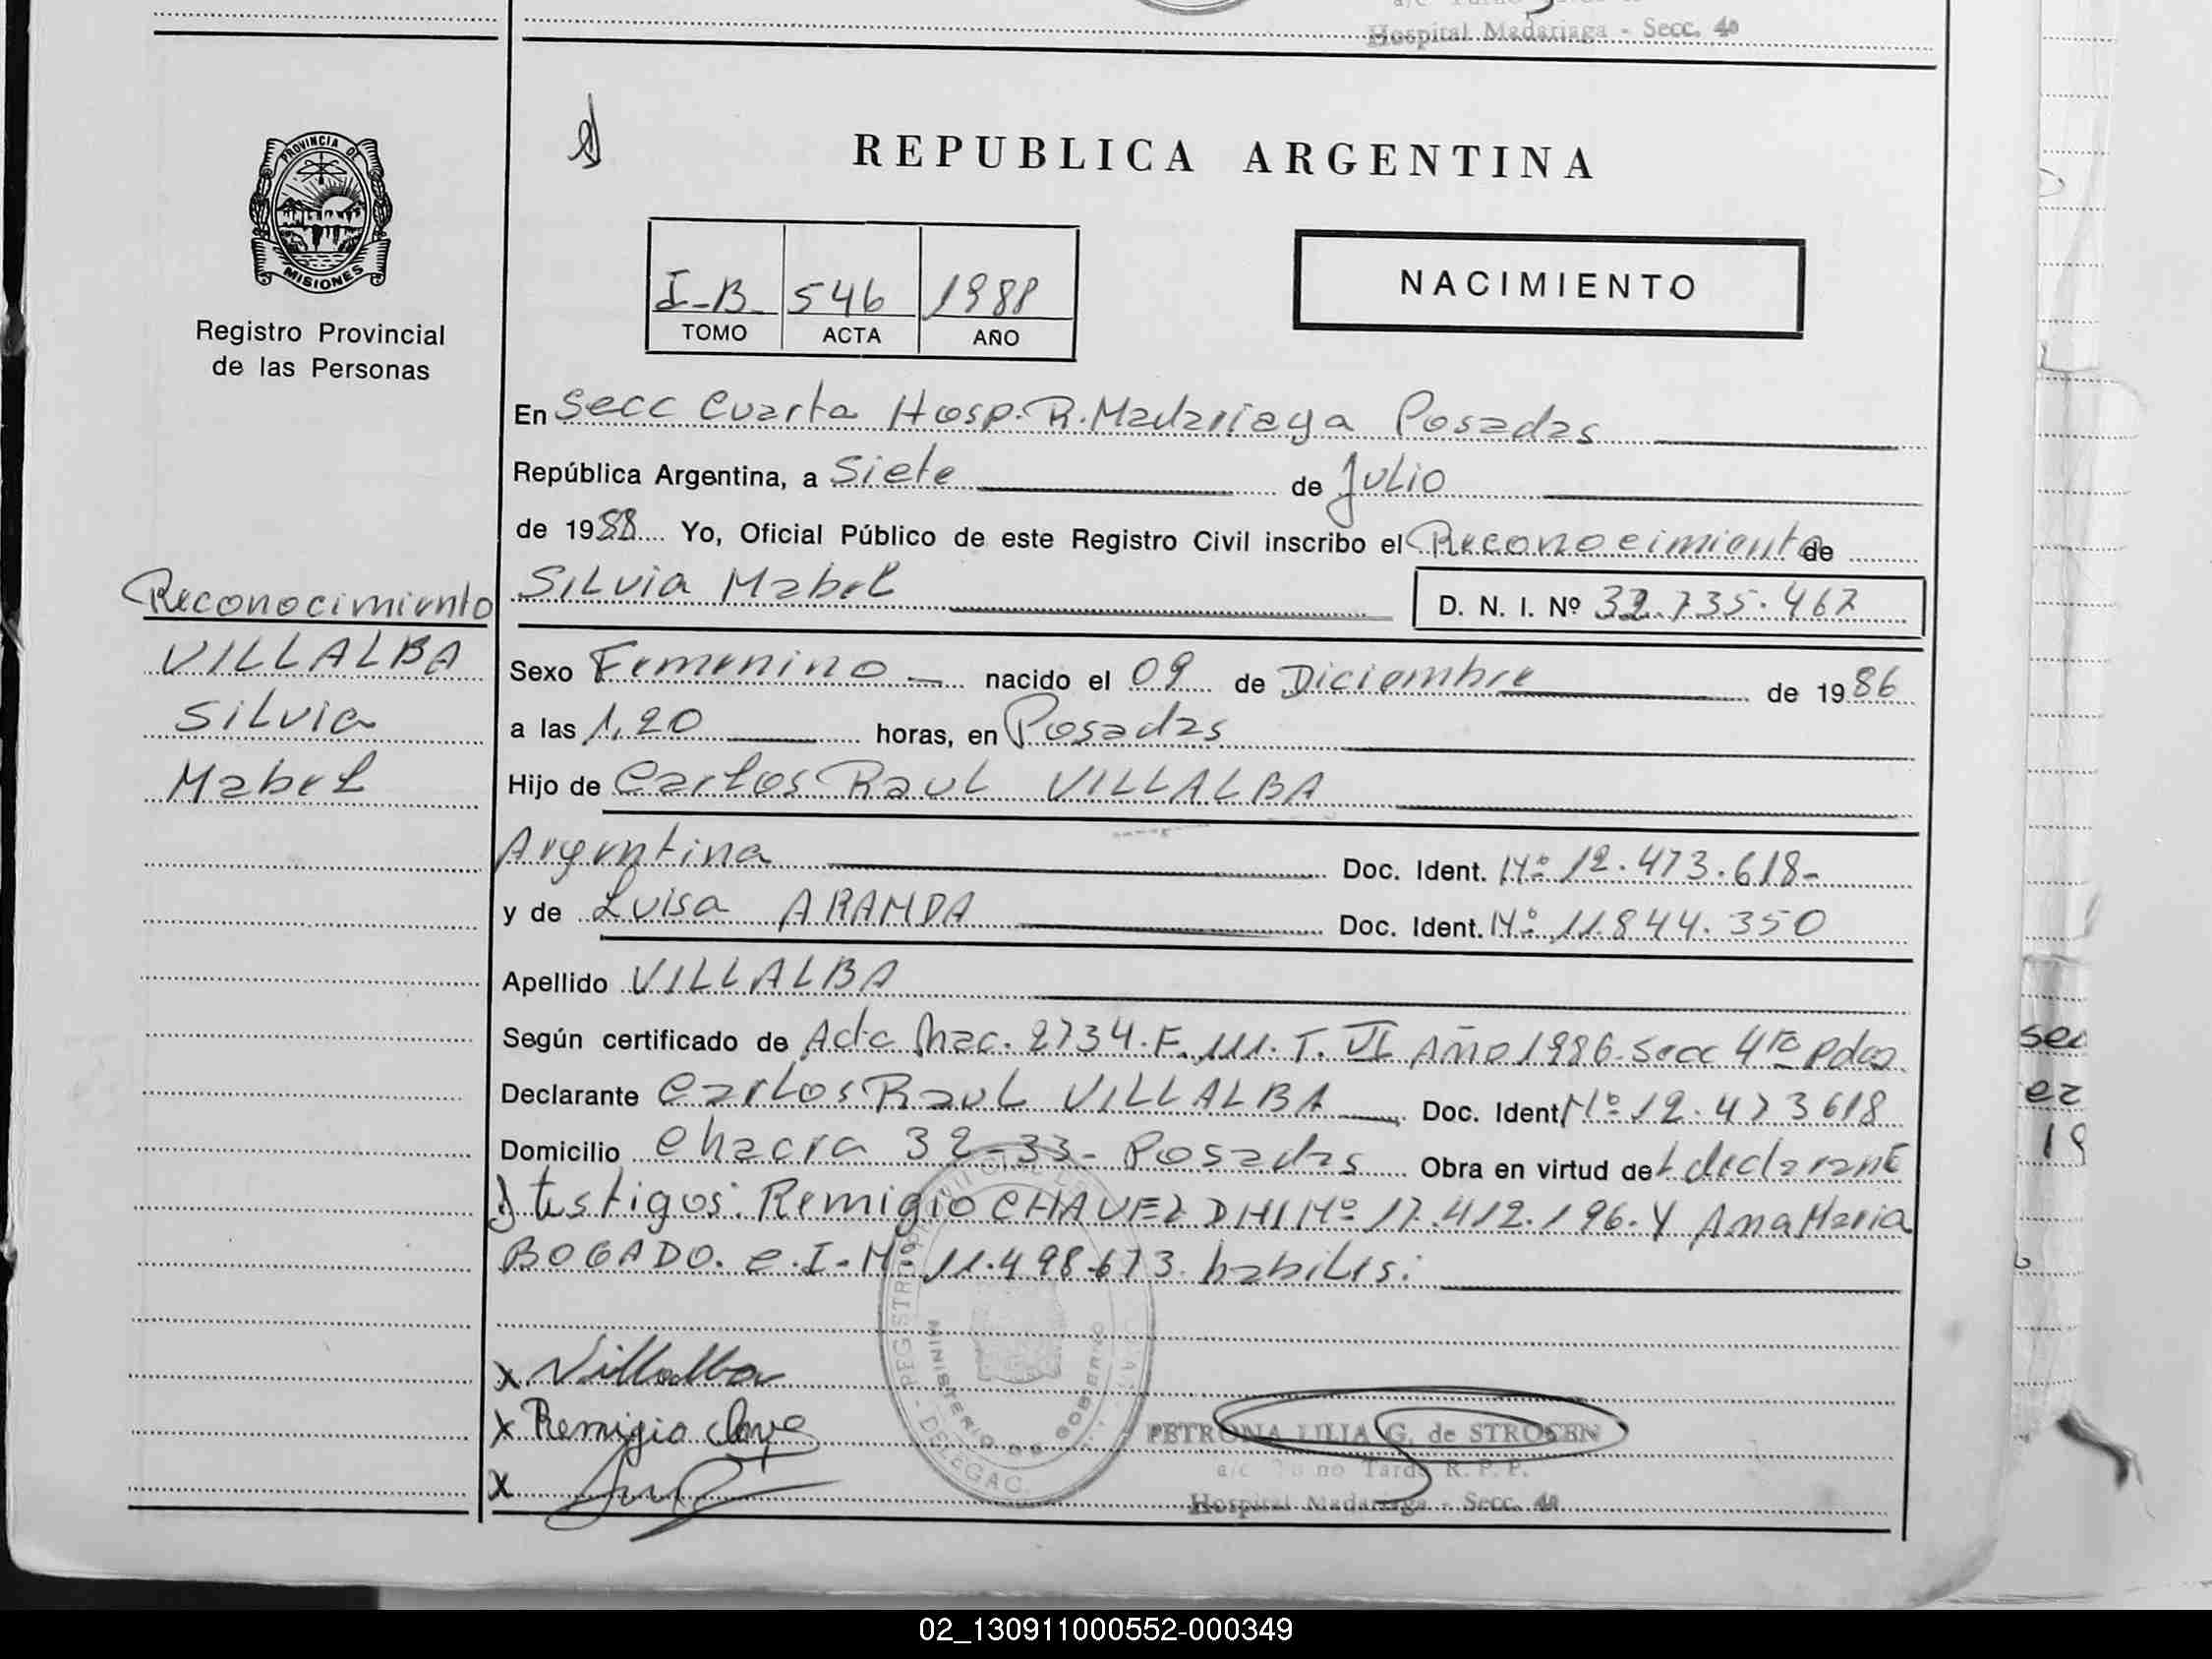 Hospital Madariaga - Secc. 4a
PROVINCIA DE
MISIONES
Registro Provincial
de las Personas
REPUBLICA ARGENTINA
I-B 546 1988
TOMO ACTA AÑO
NACIMIENTO
En Secc Cuarta Hosp. R. Madariaga Posadas
República Argentina, a Siete de Julio
de 1988 Yo, Oficial Público de este Registro Civil inscribo el Reconocimiento de
Silvia Mabel D. N. I. Nº 32.735.467
Reconocimiento
VILLALBA
Silvia
Mabel
Sexo Femenino nacido el 09 de Diciembre de 1986
a las 1,20 horas, en Posadas
Hijo de Carlos Raul VILLALBA
Argentina Doc. Ident. Nº 12.473.618-
y de Luisa ARANDA Doc. Ident. Nº 11.844.350
Apellido VILLALBA
Según certificado de Acta Nac. 2734. F. 111. T. VI Año 1986. Secc 4ta Pdas
Declarante Carlos Raul VILLALBA Doc. Ident. Nº 12.473618
Domicilio Chacra 32-33- Posadas Obra en virtud del declarante
testigos: Remigio CHAVEZ DNI Nº 17.412.196. Y Ana Maria
BOGADO. C.I. Nº 11.498.673. habiles.
x Villalba
x Remigio
x
MINISTERIO DE GOBIERNO
DELEGAC.
PETRONA LILIA G. de STROSEN
a/c Turno Tarde R. P. P.
Hospital Madariaga - Secc. 4a
sec
ez
19
02_130911000552-000349